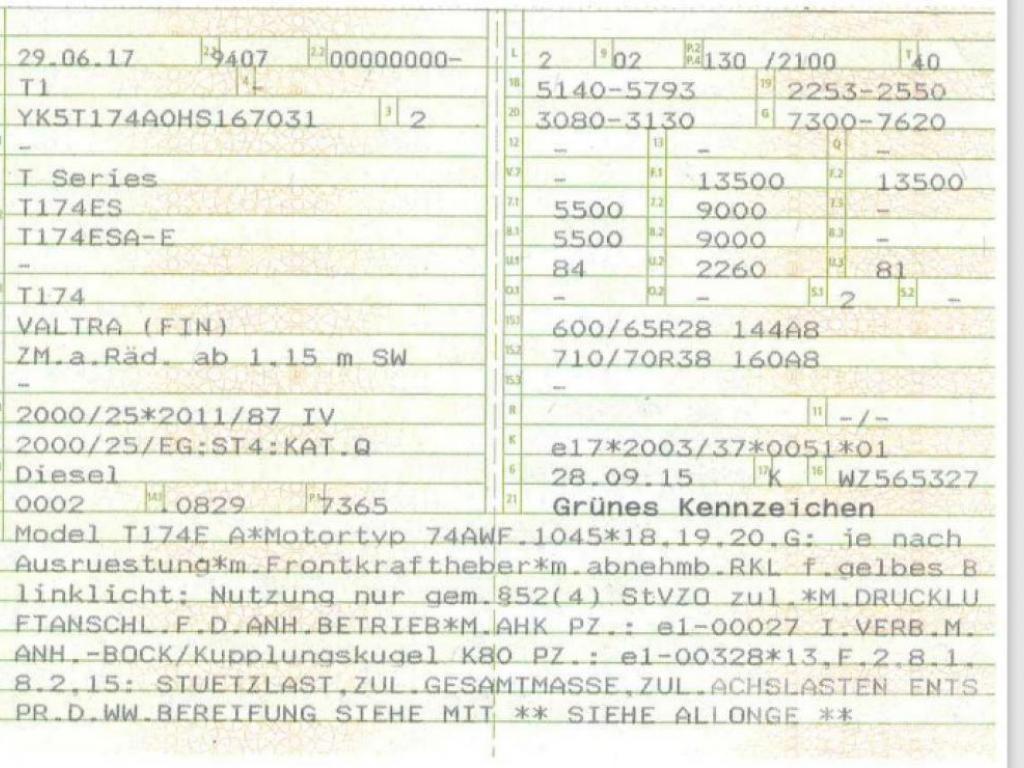 29.06.17 2.1 9407 2.2 00000000-
T1 4 -
YK5T174AOHS167031 3 2
-
T Series
T174ES
T174ESA-E
-
T174
VALTRA (FIN)
ZM.a.Räd. ab 1.15 m SW
-
2000/25*2011/87 IV
2000/25/EG:ST4:KAT.Q
Diesel
0002 14.1 0829 P.1 7365
L 2 9 02 P.2 P.4 130 /2100 T 40
18 5140-5793 19 2253-2550
20 3080-3130 G 7300-7620
12 - 13 - Q -
V.7 - F.1 13500 F.2 13500
7.1 5500 7.2 9000 7.3 -
8.1 5500 8.2 9000 8.3 -
U.1 84 U.2 2260 U.3 81
O.1 - O.2 - S.1 2 S.2 -
15.1 600/65R28 144A8
15.2 710/70R38 160A8
15.3 -
R 11 -/-
K e17*2003/37*0051*01
6 28.09.15 17 K 16 WZ565327
21 Grünes Kennzeichen
Model T174E A*Motortyp 74AWF.1045*18,19,20,G: je nach
Ausruestung*m.Frontkraftheber*m.abnehmb.RKL f.gelbes B
linklicht: Nutzung nur gem.§52(4) StVZO zul.*M.DRUCKLU
FTANSCHL.F.D.ANH.BETRIEB*M.AHK PZ.: e1-00027 I.VERB.M.
ANH.-BOCK/Kupplungskugel K80 PZ.: e1-00328*13,F,2,8.1,
8.2,15: STUETZLAST,ZUL.GESAMTMASSE,ZUL.ACHSLASTEN ENTS
PR.D.WW.BEREIFUNG SIEHE MIT ** SIEHE ALLONGE **